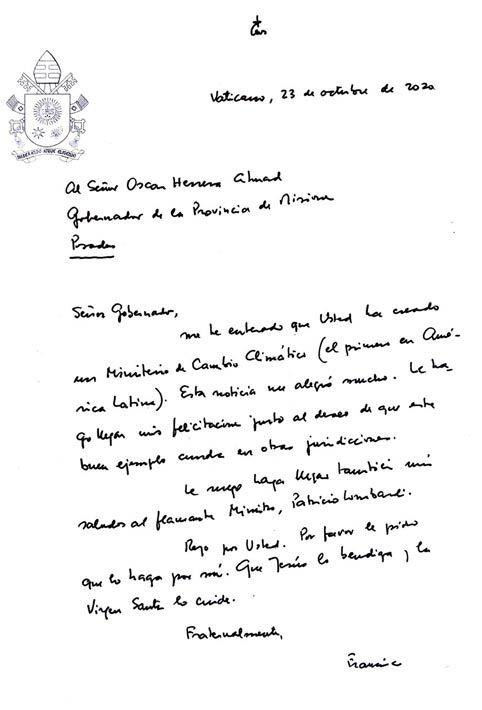 Vaticano, 23 de octubre de 2020
MISERANDO ATQUE ELIGENDO
Al Señor Oscar Herrera Ahuad
Gobernador de la Provincia de Misiones
Posadas
Señor Gobernador,
me he enterado que Usted ha creado
un Ministerio de Cambio Climático (el primero en Amé-
rica Latina). Esta noticia me alegró mucho. Le ha-
go llegar mis felicitaciones junto al deseo de que este
buen ejemplo cunda en otras jurisdicciones.
Le ruego haga llegar también mis
saludos al flamante Ministro, Patricio Lombardi.
Rezo por Usted. Por favor le pido
que lo haga por mí. Que Jesús lo bendiga y la
Virgen Santa lo cuide.
Fraternalmente,
Francisco